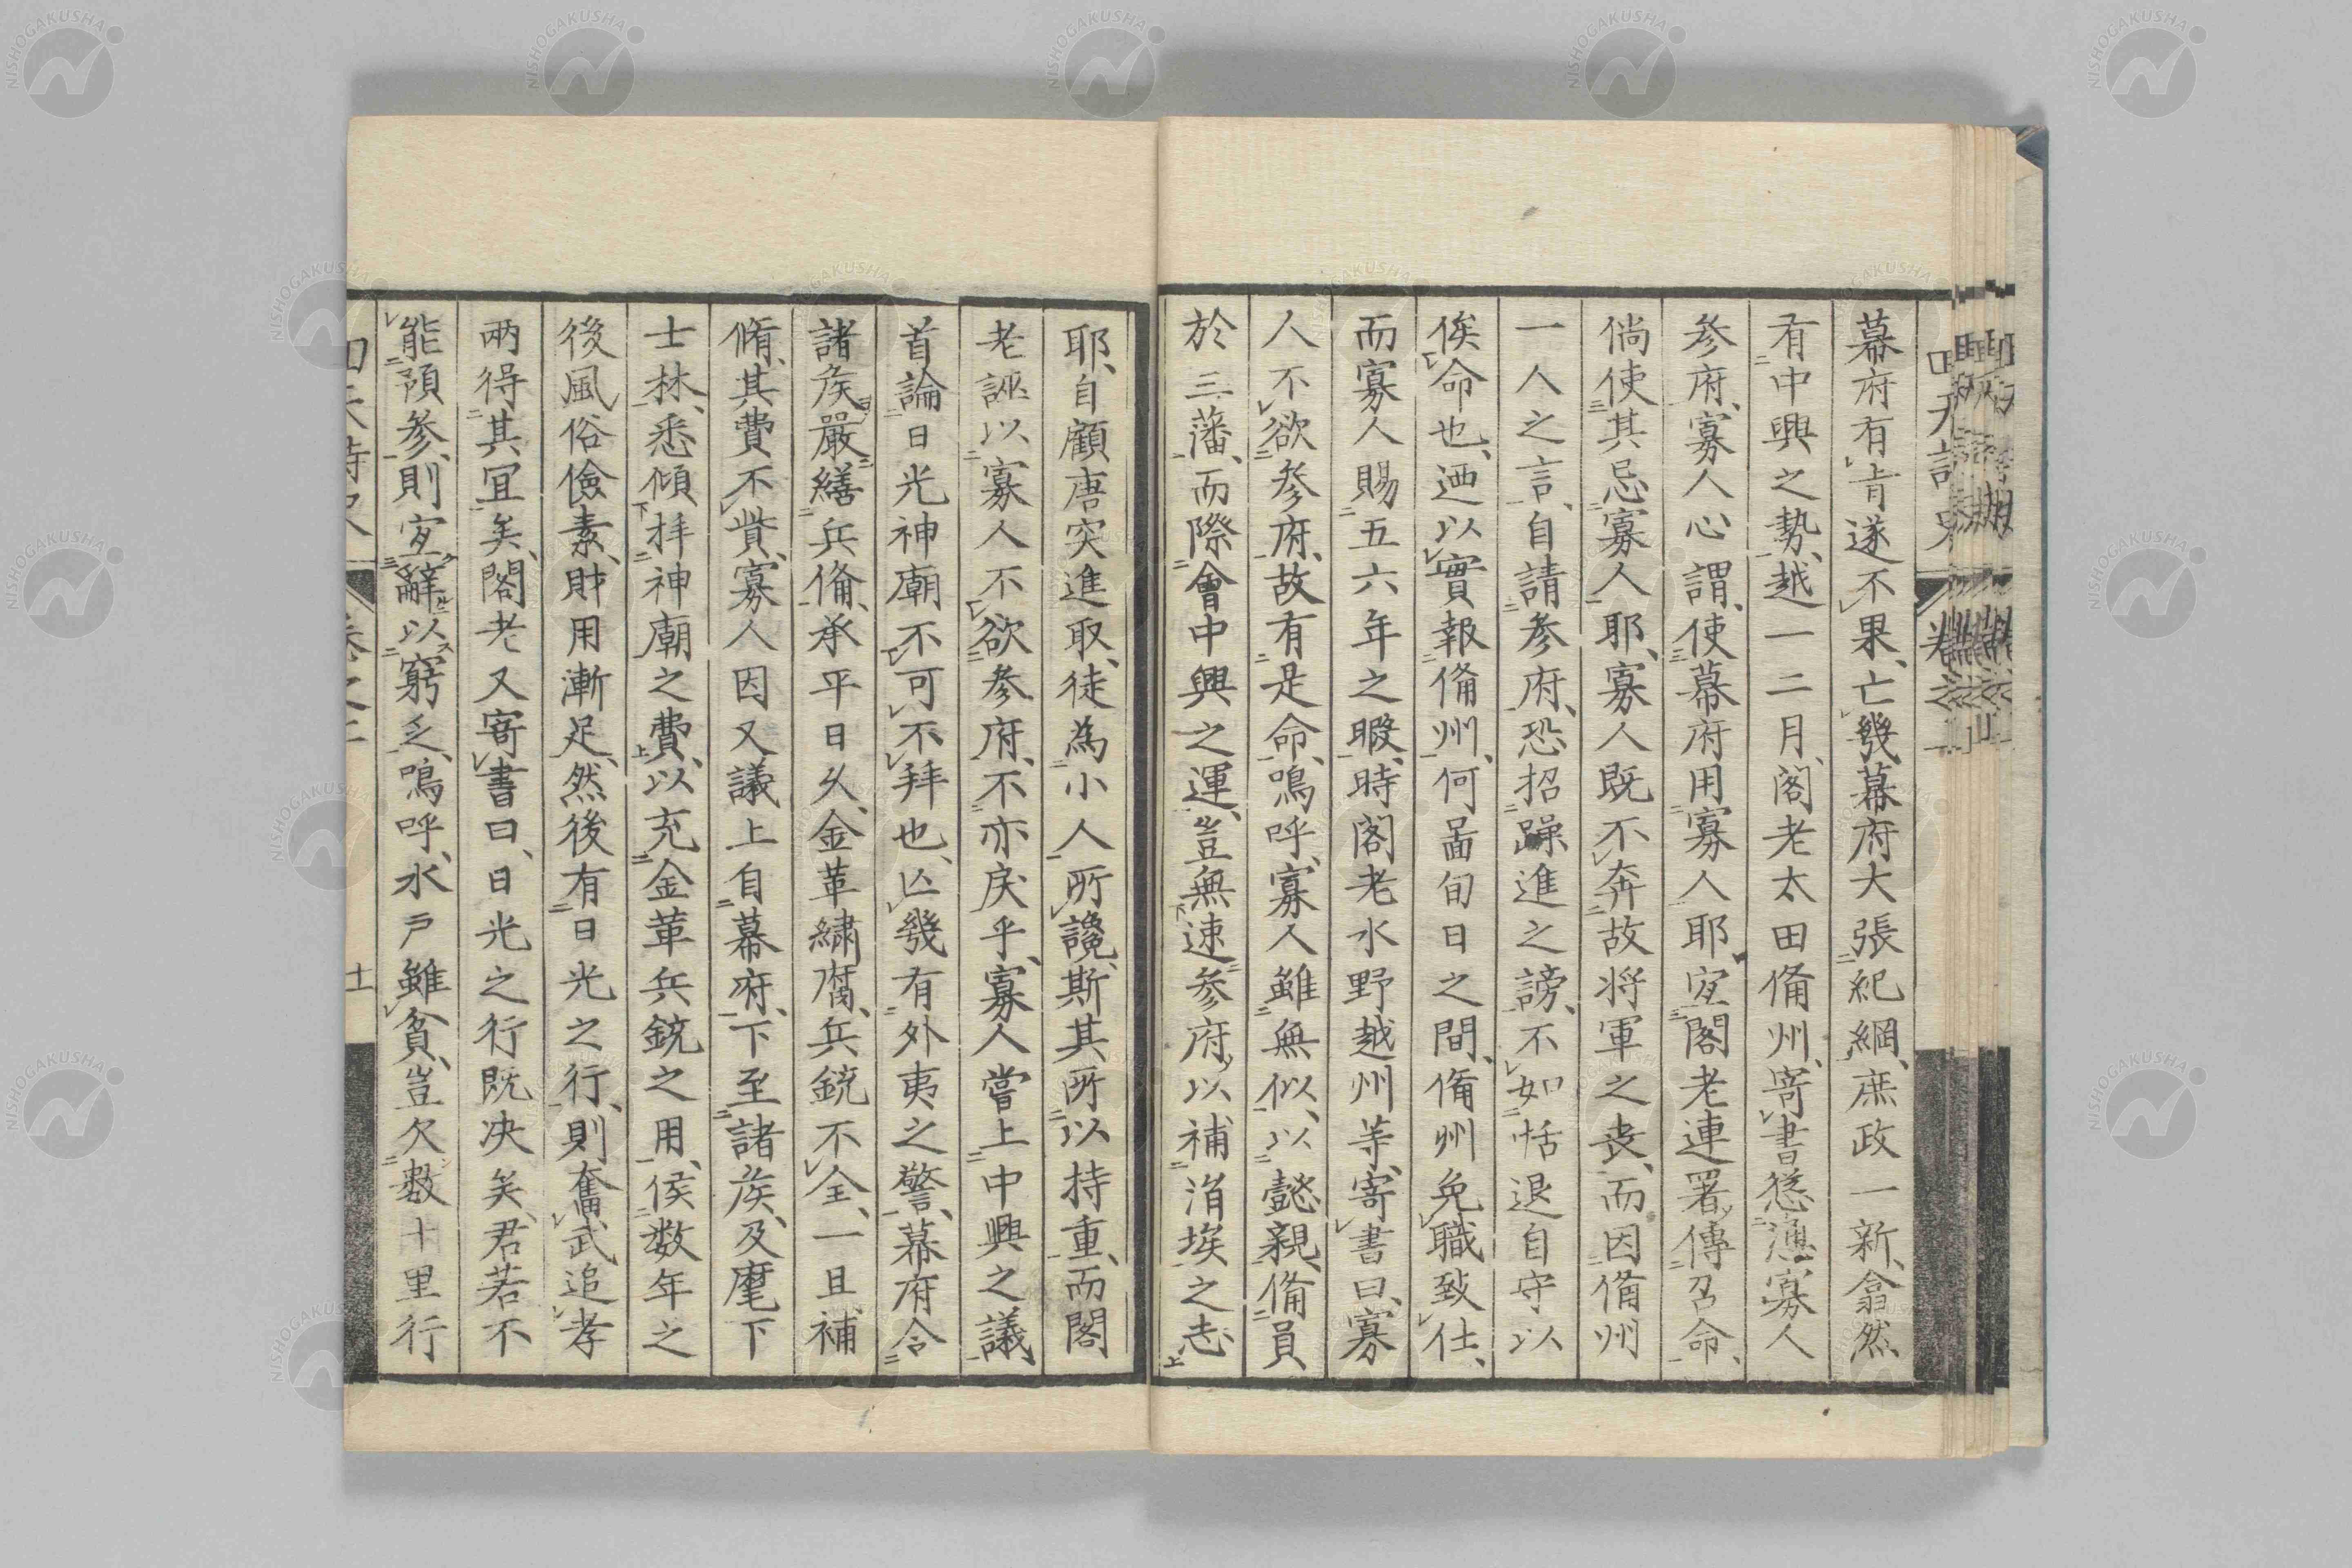 幕府有旨遂不果、亡幾幕府大張紀綱、庶政一新、翕然
有中興之勢、越一二月、閣老太田備州、寄書慫慂寡人
参府、寡人心謂、使幕府用寡人耶、宜閣老連署、傳召命、
倘使其忌寡人耶、寡人既不奔故将軍之喪、而因備州
一人之言、自請参府、恐招躁進之謗、不如恬退自守以
俟命也、迺以實報備州、何啚旬日之間、備州免職致仕、
而寡人賜五六年之暇、時閣老水野越州等、寄書曰、寡
人不欲参府、故有是命、嗚呼、寡人雖無似、以懿親備員
於三藩、而際會中興之運、豈無速参府、以補涓埃之志
耶、自顧唐突進取、徒為小人所讒、斯其所以持重、而閣
老誣以寡人不欲参府、不亦戻乎、寡人當上中興之議、
首論日光神廟不可不拜也、亾幾有外夷之警、幕府令
諸矦嚴繕兵備、承平日久、金革繍腐、兵銃不全、一旦補
脩、其費不貲、寡人因又議上自幕府、下至諸矦、及麾下
士林、悉傾拝神廟之費、以充金革兵銃之用、俟数年之
後風俗儉素、財用漸足、然後有日光之行、則奮武追孝
兩得其宜矣、閣老又寄書曰、日光之行既决矣、君若不
能預参、則宜辭以窮乏、嗚呼、水戸雖貧、豈欠数十里行
NISHOGAKUSHA